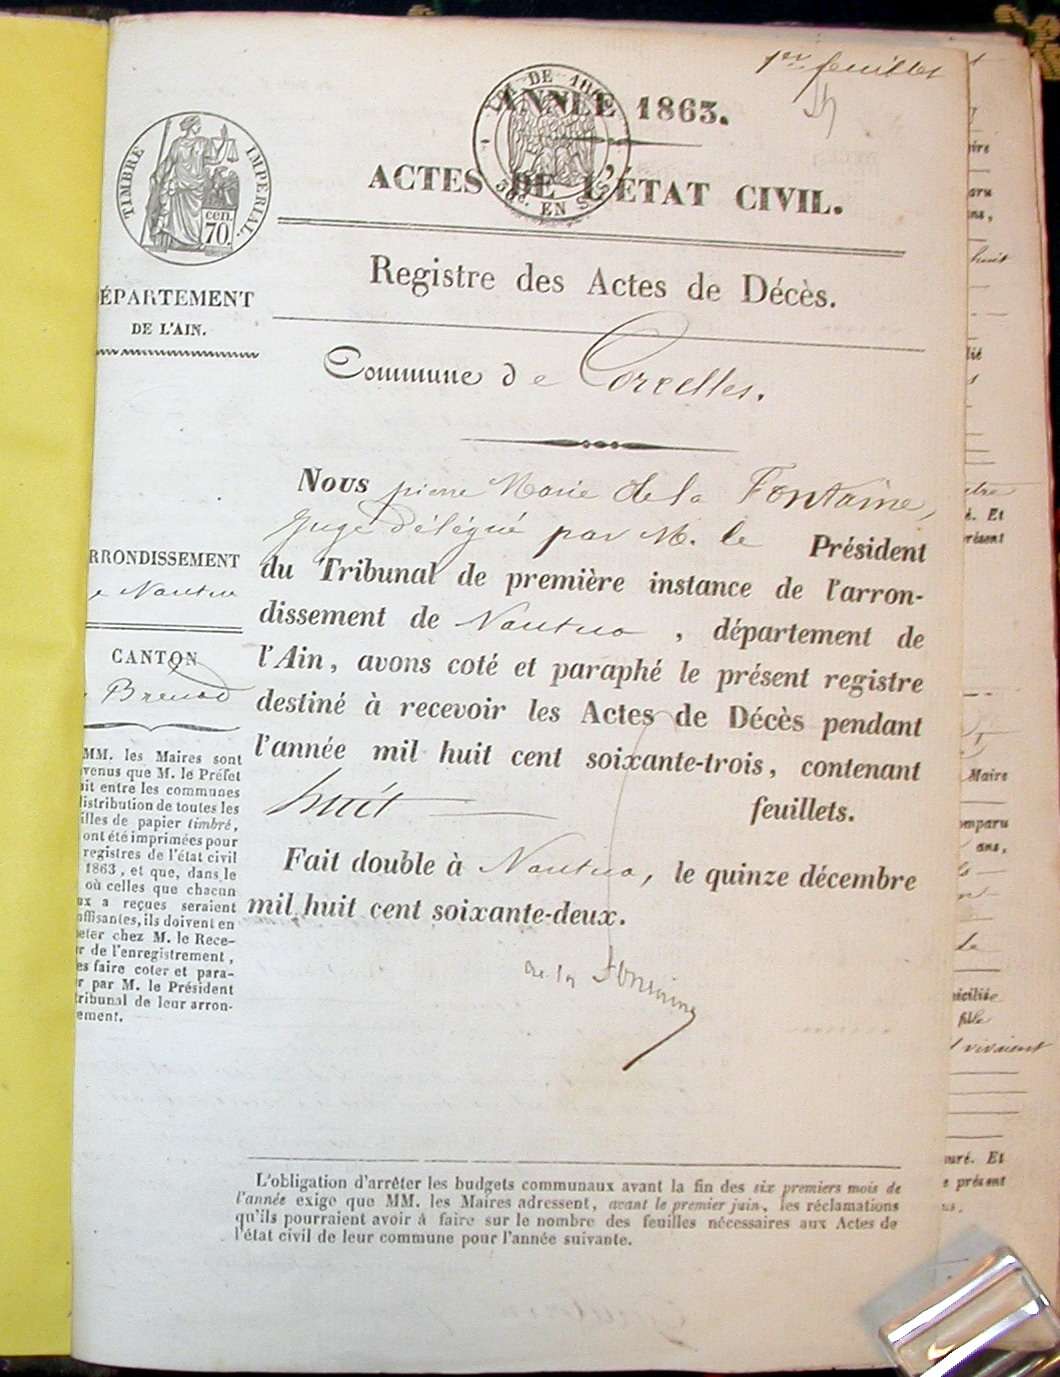 1er feuillet
ANNÉE 1863.
LOI DE
EN S
TIMBRE IMPERIAL
cen.
70.
ACTES DE L'ÉTAT CIVIL.
Registre des Actes de Décès.
ÉPARTEMENT
DE L'AIN.
Commune de Corcelles.
Nous pierre Marie de la Fontaine,
Juge délégué par M. le Président
du Tribunal de première instance de l'arron-
dissement de Nantua, département de
l'Ain, avons coté et paraphé le présent registre
destiné à recevoir les Actes de Décès pendant
l'année mil huit cent soixante-trois, contenant
huit feuillets.
Fait double à Nantua, le quinze décembre
mil huit cent soixante-deux.
de la Fontaine
RRONDISSEMENT
e Nantua
CANTON
Brenod
MM. les Maires sont
venus que M. le Préfet
it entre les communes
istribution de toutes les
illes de papier timbré,
ont été imprimées pour
registres de l'état civil
1863, et que, dans le
où celles que chacun
ux a reçues seraient
uffisantes, ils doivent en
eter chez M. le Rece-
r de l'enregistrement,
es faire coter et para-
r par M. le Président
tribunal de leur arron-
ement.
L'obligation d'arrêter les budgets communaux avant la fin des six premiers mois de
l'année exige que MM. les Maires adressent, avant le premier juin, les réclamations
qu'ils pourraient avoir à faire sur le nombre des feuilles nécessaires aux Actes de
l'état civil de leur commune pour l'année suivante.
huit
é. Et
présent
Maire
omparu
ans,
icilié
fille
vivaient
uré. Et
e présent